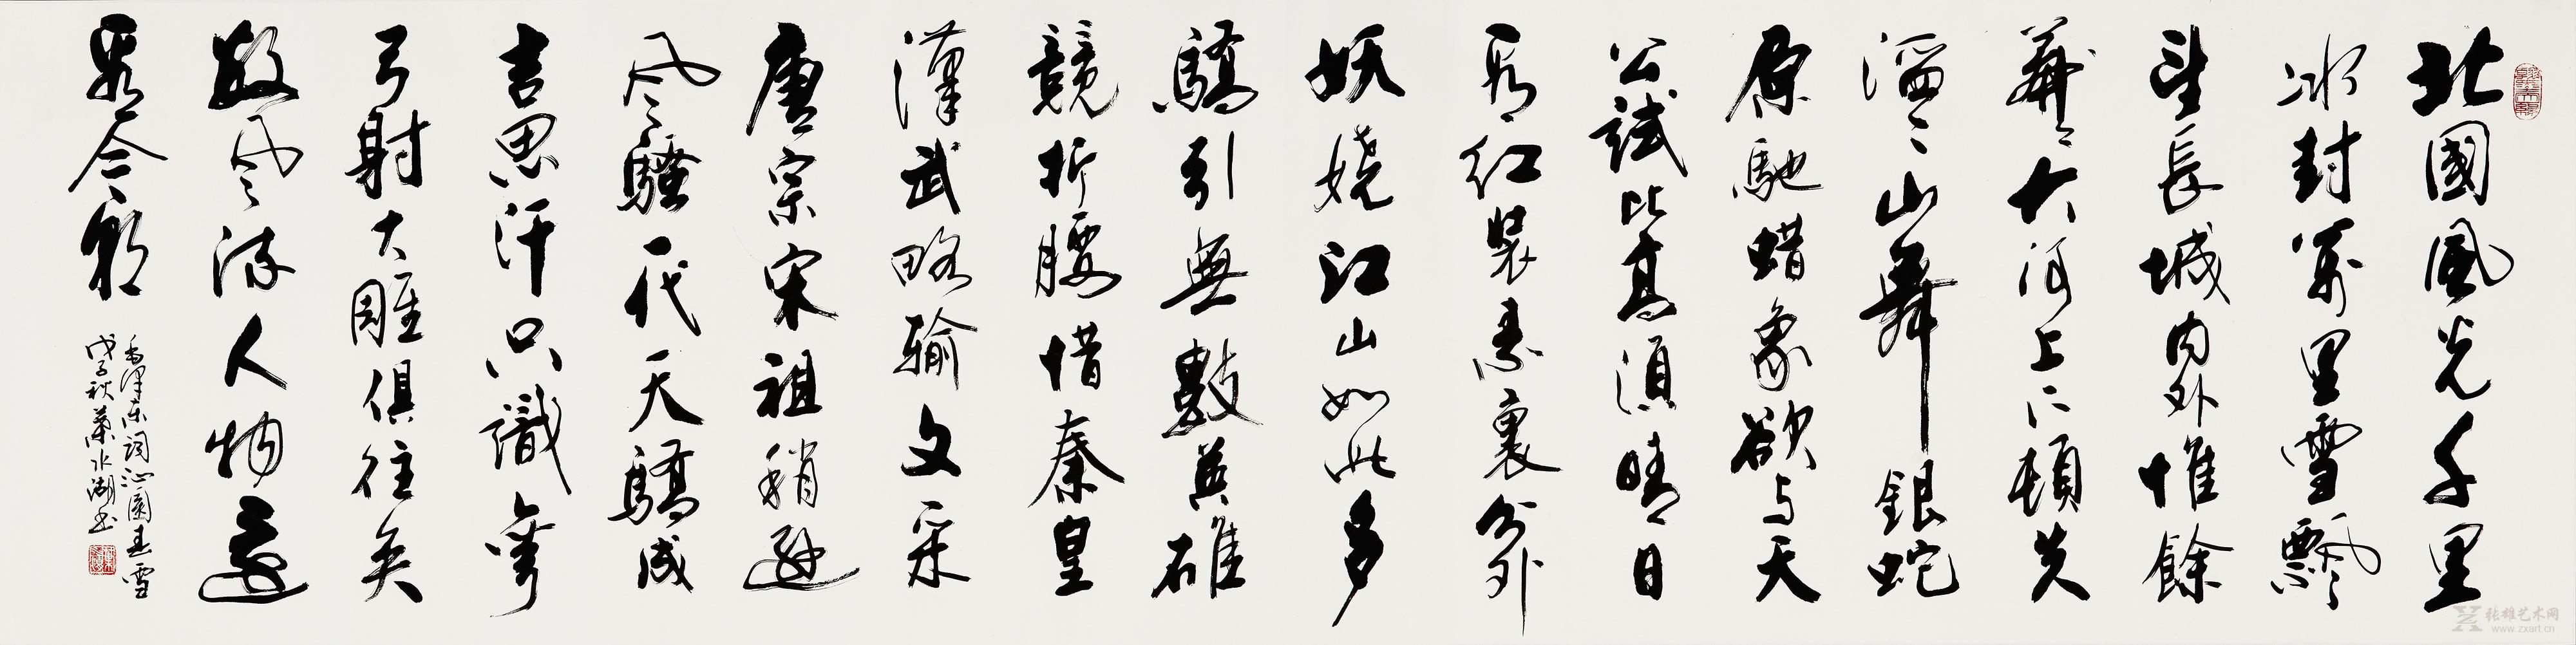 北國風光千里
冰封萬里雪飄
望長城内外惟餘
莽〻大河上下頓失
滔〻山舞銀蛇
原馳蜡象欲与天
公試比高須晴日
看红裝素裏分外
妖嬈江山如此多
驕引無數英雄
競折腰惜秦皇
漢武略输文采
唐宗宋祖稍遜
风騷一代天驕成
吉思汗只識彎
弓射大雕俱往矣
數风流人物還
看今朝
毛澤东词沁園春雪
戊子秋葉水湖书
张雄艺术网
www.zxart.cn